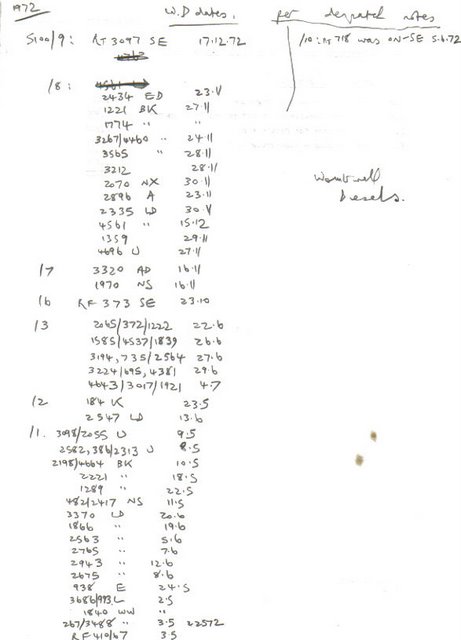 1972
W.D dates, per despatch notes
S100/9: RT 3097 SE 17.12.72 /10: RT 718 was ON-SE 5.6.72
/8:
2434 ED 23.11
1221 BK 27.11
1774 " "
3267/4460 " 24.11
3565 " 28.11
3212 28.11
2070 NX 30.11
2896 A 23.11
2335 LD 30.11
4561 " 15.12
1359 29.11
4696 U 27.11
Wombwell
Diesels.
/7 3320 AD 16.11
1970 NS 16.11
/6 RF 373 SE 23.10
/3 2065/372/1222 22.6
1585/4537/1839 26.6
3194, 735/2564 27.6
3224/695, 4381 29.6
4643/3017/1921 4.7
/2 184 K 23.5
2547 LD 13.6
/1. 3098/2055 U 9.5
2582, 386/2313 U 8.5
2198/4664 BK 10.5
2221 " 18.5
1289 " 22.5
482/2417 NS 11.5
3370 LD 20.6
1866 " 19.6
2563 " 5.6
2765 " 7.6
2943 " 12.6
2675 " 8.6
938 E 24.5
3686/993 L 2.5
1840 WW "
267/3488 " 3.5 22572
RF 410/67 3.5